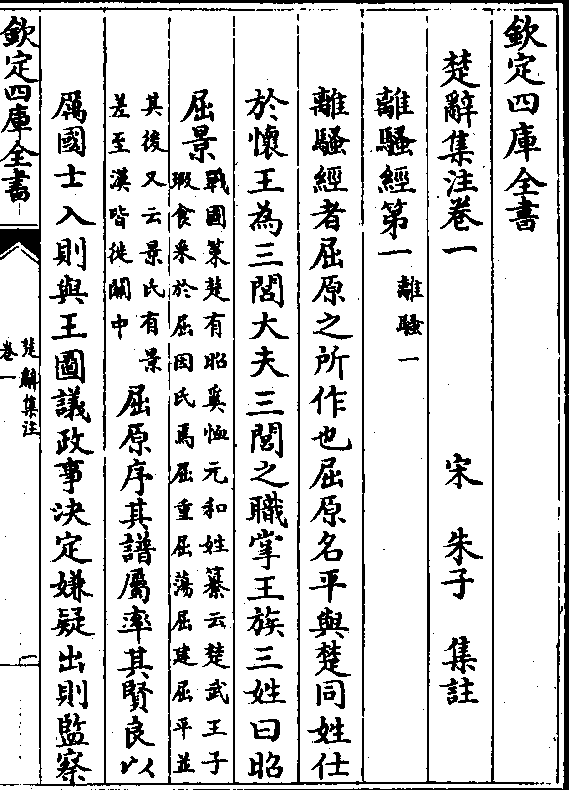 欽定四庫全書
楚辭集注卷一
宋 朱子 集註
離騷經第一 離騷一
離騷經者屈原之所作也屈原名平與楚同姓仕
於懷王為三閭大夫三閭之職掌王族三姓曰昭
屈景
戰國策楚有昭奚恤元和姓纂云楚武王子
瑕食采於屈因氏焉屈重屈蕩屈建屈平並
其後又云景氏有景
差至漢皆徙關中
屈原序其譜屬率其賢良以
厲國士入則與王圖議政事決定嫌疑出則監察
欽定四庫全書
楚辭集注
卷一
一